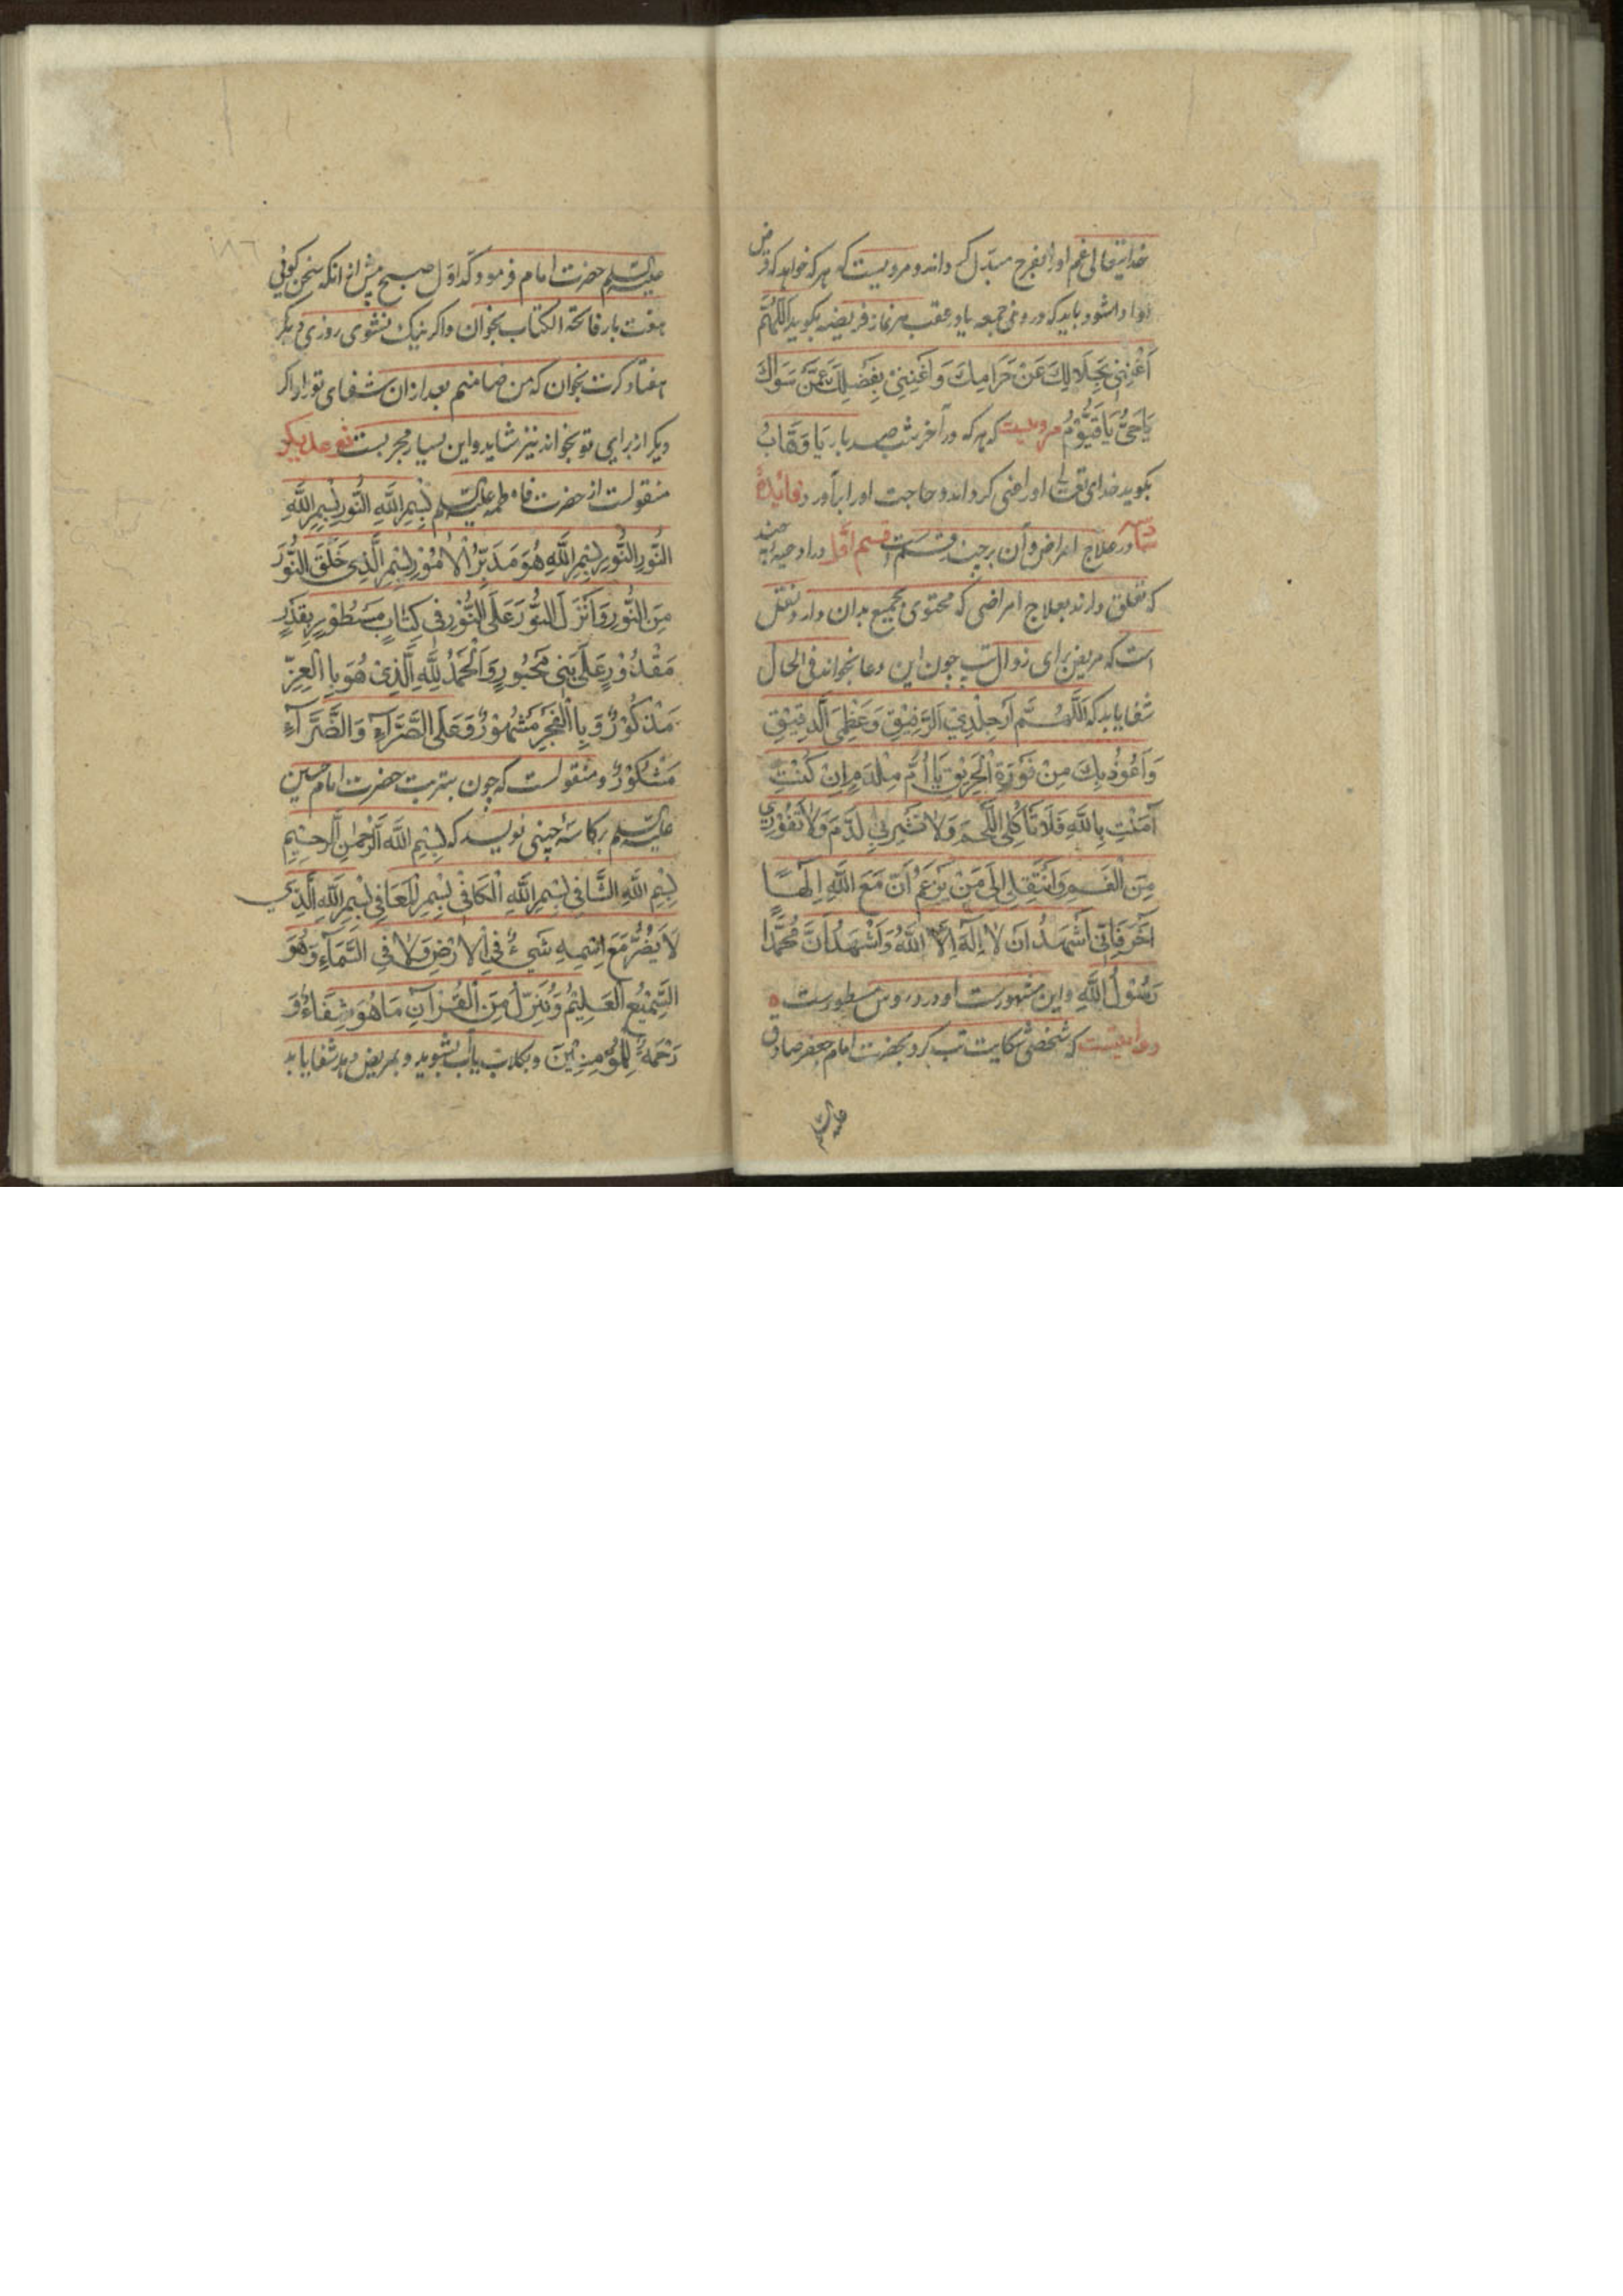 خدایتعالی غم او را بفرح مبدل کرداند و مرویست که هر که خواهد که قرض
او ادا شود باید که در روز جمعه یا در عقب هر نماز فریضه بکوید اَللّٰهُمَّ
اَغْنِنِی بِحَلَالِكَ عَنْ حَرَامِكَ وَاَغْنِنِیْ بِفَضْلِكَ عَمَّنْ سِوَاكَ
یَا حَیُّ یَا قَیُّوْمُ مرویست که هر که در آخر شب صد بار یَا وَهَّابُ
بکوید خدای تعالی او را غنی کرداند و حاجت او را برآورد فائدهٔ
در علاج امراض و آن بر چند قسمست قسم اول در ادعیه چند
که تعلق دارند بعلاج امراضی که محتوی بجمیع بدان دارد نقل
است که مریض برای زوال تب چون این دعا بخواند فی الحال
شفا یابد که اَللّٰهُمَّ ارْحَمْ جِلْدِیَ الرَّقِیْقَ وَعَظْمِیَ الدَّقِیْقِ
وَاَعُوْذُ بِكَ مِنْ فَوْرَةِ الْحَرِیْقِ یَا اُمَّ مِلْدَمِ اِنْ كُنْتِ
آمَنْتِ بِاللّٰهِ فَلَا تَأْكُلِی اللَّحْمَ وَلَا تَشْرَبِی الدَّمَ وَلَا تَفُوْرِی
مِنَ الْفَمِ وَانْتَقِلِی اِلَی مَنْ یَزْعَمُ اَنَّ مَعَ اللّٰهِ اِلٰهًا
آخَرَ فَاِنِّی اَشْهَدُ اَنْ لَا اِلٰهَ اِلَّا اللّٰهُ وَاَشْهَدُ اَنَّ مُحَمَّدًا
رَسُوْلُ اللّٰهِ و این مشهورست و در دروس مسطورست ه
روایتست که شخصی شکایت تب کرد بحضرت امام جعفر صادق
علیه السلم
علیه السلم حضرت امام فرمود که اول صبح پیش از انکه سخن کوئی
هفت بار فاتحة الکتاب بخوان و اکر نیک نشوی روزی دیکر
هفتاد کرت بخوان که من ضامنم بعد از ان شفای تو را و اکر
دیکر از برای تو بخواند نیز شاید و این بسیار مجربست نوع دیکر
منقولست از حضرت فاطمه علیه السلم بِسْمِ اللّٰهِ النُّوْرِ بِسْمِ اللّٰهِ
النُّوْرِ النُّوْرِ بِسْمِ اللّٰهِ هُوَ مُدَبِّرُ الْاُمُوْرِ بِسْمِ الَّذِی خَلَقَ النُّوْرَ
مِنَ النُّوْرِ وَاَنْزَلَ النُّوْرَ عَلَی النُّوْرِ فِی كِتَابٍ مَسْطُوْرٍ بِقَدَرٍ
مَقْدُوْرٍ عَلَی نَبِیٍّ مَحْبُوْرٍ وَالْحَمْدُ لِلّٰهِ الَّذِیْ هُوَ بِالْعِزِّ
مَذْكُوْرٌ وَبِالْفَجْرِ مَشْهُوْرٌ وَعَلَی السَّرَّآءِ وَالضَّرَّآءِ
مَشْكُوْرٌ و منقولست که چون بتربت حضرت امام حسین
علیه السلم بر کاسهٔ چینی نویسد که بِسْمِ اللّٰهِ الرَّحْمٰنِ الرَّحِیْمِ
بِسْمِ اللّٰهِ الشَّافِی بِسْمِ اللّٰهِ الْكَافِی بِسْمِ الْمُعَافِی بِسْمِ اللّٰهِ الَّذِی
لَا یَضُرُّ مَعَ اسْمِهِ شَیْءٌ فِی الْاَرْضِ وَلَا فِی السَّمَآءِ وَهُوَ
السَّمِیْعُ الْعَلِیْمُ وَنُنَزِّلُ مِنَ الْقُرْآنِ مَا هُوَ شِفَاءٌ وَ
رَحْمَةٌ لِلْمُؤْمِنِیْنَ و بکلاب یا آب بشوید و بمریض دهد شفا یابد